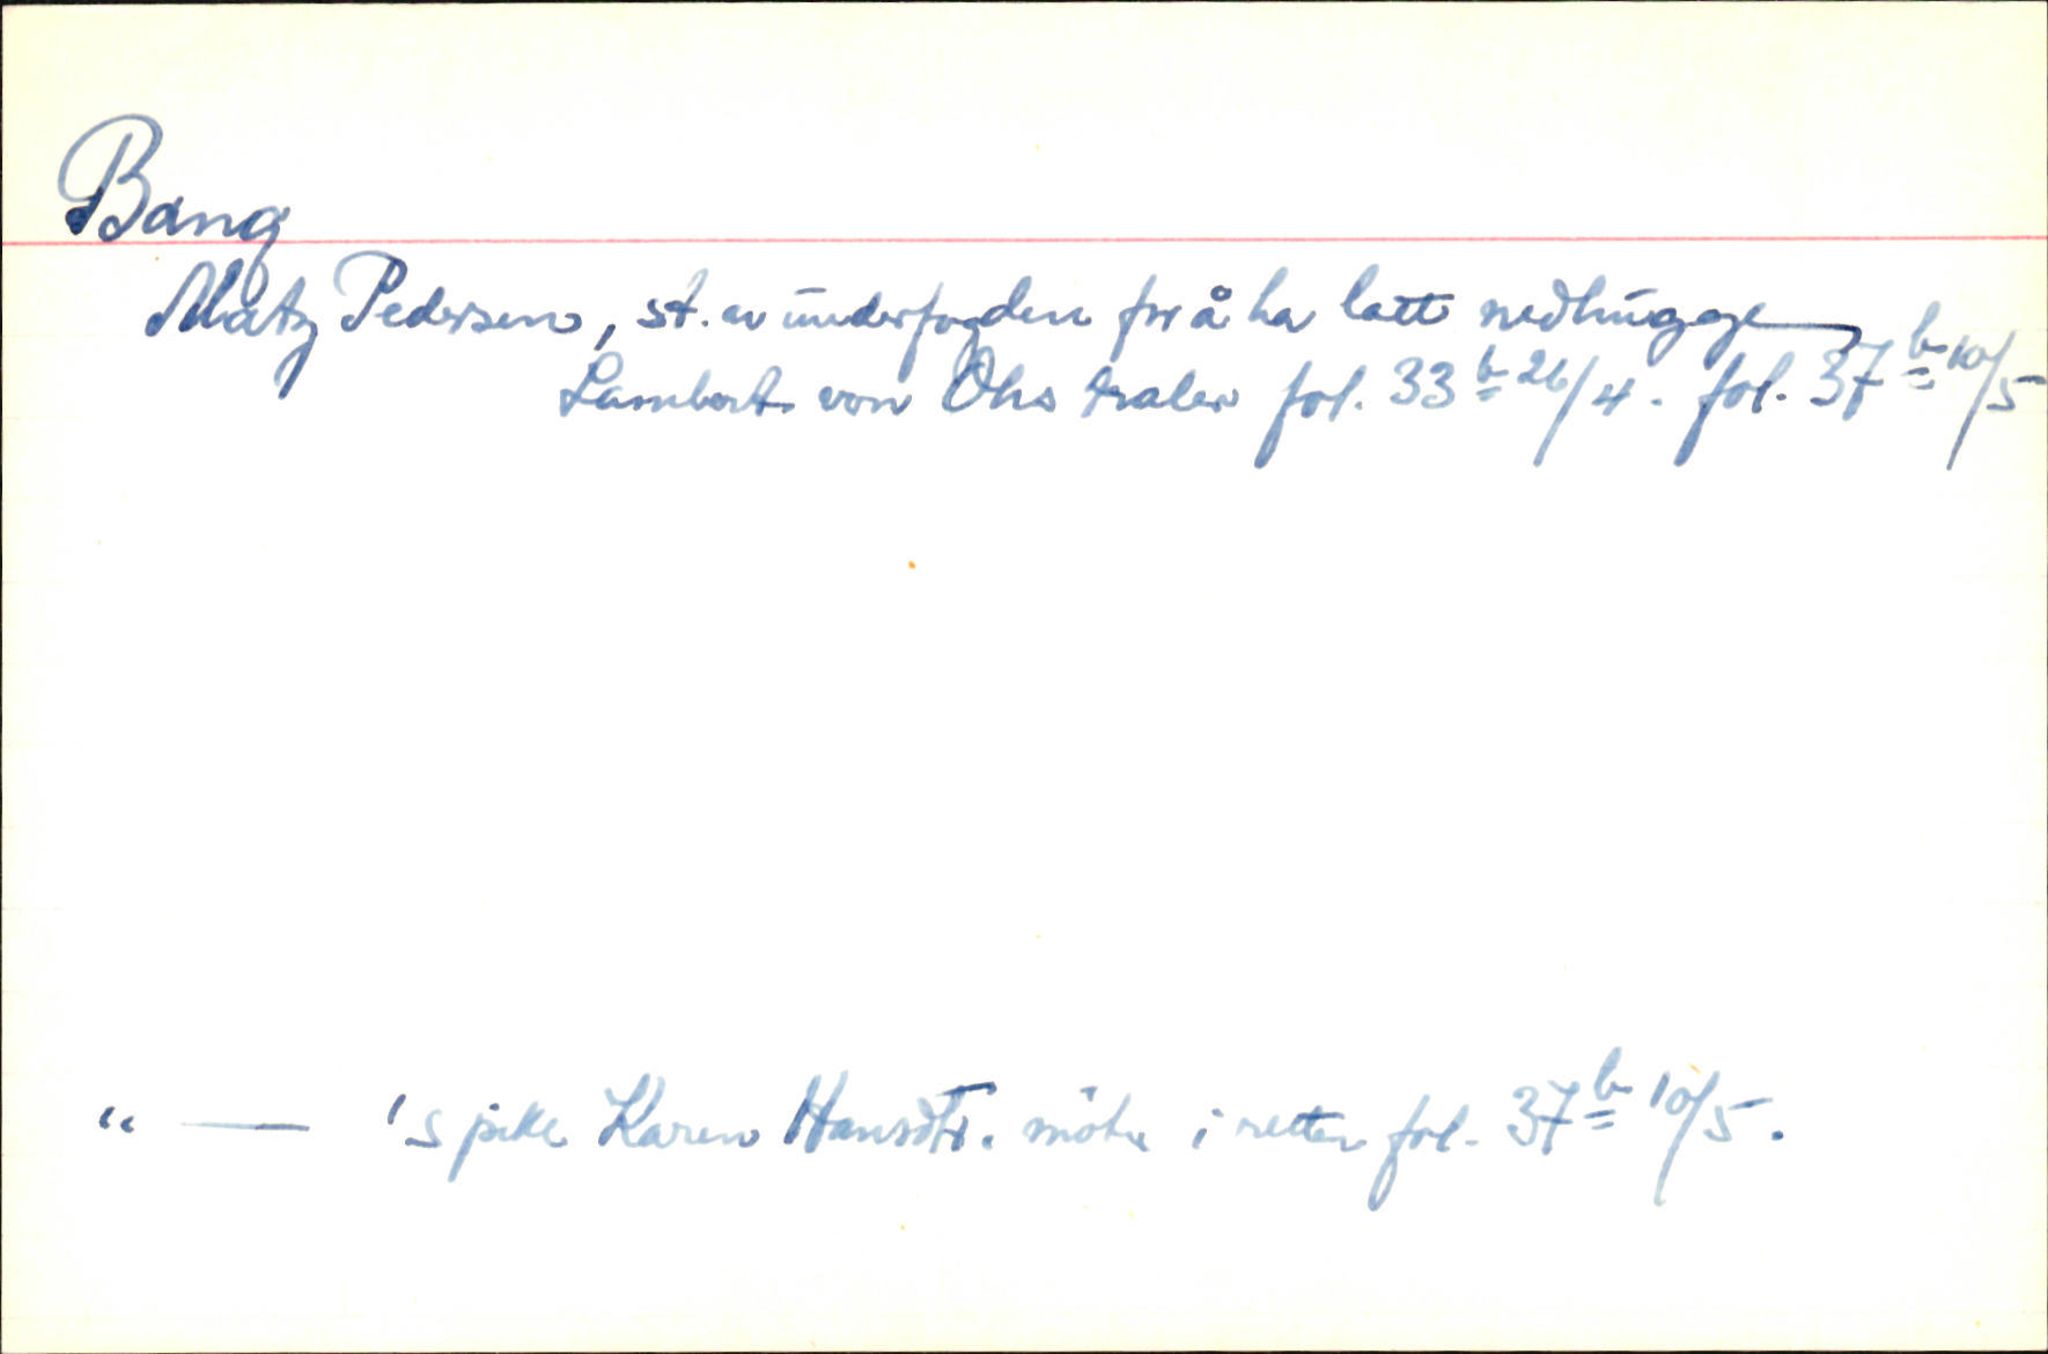 Bang
Matz Pedersen, st. av underfogden for å ha latt nedhugge
Lambert von Ohs traler fol. 33 b 26/4. fol. 37 b 10/5
" — 's pike Karen Hansdtr. möter i retten fol. 37 b 10/5.